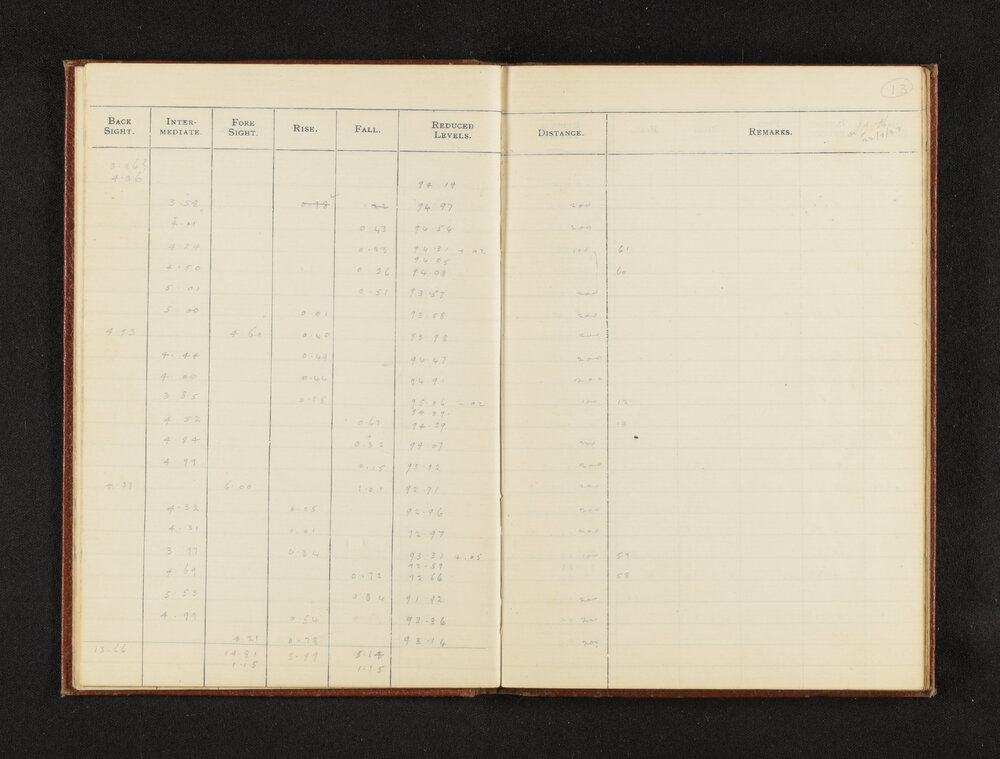 13
BACK SIGHT. INTER-MEDIATE. FORE SIGHT. RISE. FALL. REDUCED LEVELS. DISTANCE. REMARKS.
4.36
94.19
3.58 94.97 200
4.01 0.43 94.54 200
4.24 94.31 + .02 100 61
94.05
4.50 0.26 94.08 60
5.01 0.51 93.57 200
5.00 0.01 93.58 200
4.60 0.40 93.98 200
4.44 0.49 94.47 200
4.00 0.44 94.91 200
3.85 0.15 95.06 - .02 100 12
4.52 0.67 94.39 13
4.84 0.32 94.07 200
4.99 0.15 93.92 200
6.00 1.01 92.91 200
4.32 0.05 92.96 200
4.31 0.01 92.97 200
3.97 0.34 93.31 + .05 100 59
92.59
4.69 0.72 92.66 58
5.53 0.84 91.82 200
4.99 0.54 92.36 200
4.21 0.78 93.14 200
13.66 14.81 3.99 5.14
1.15 1.15